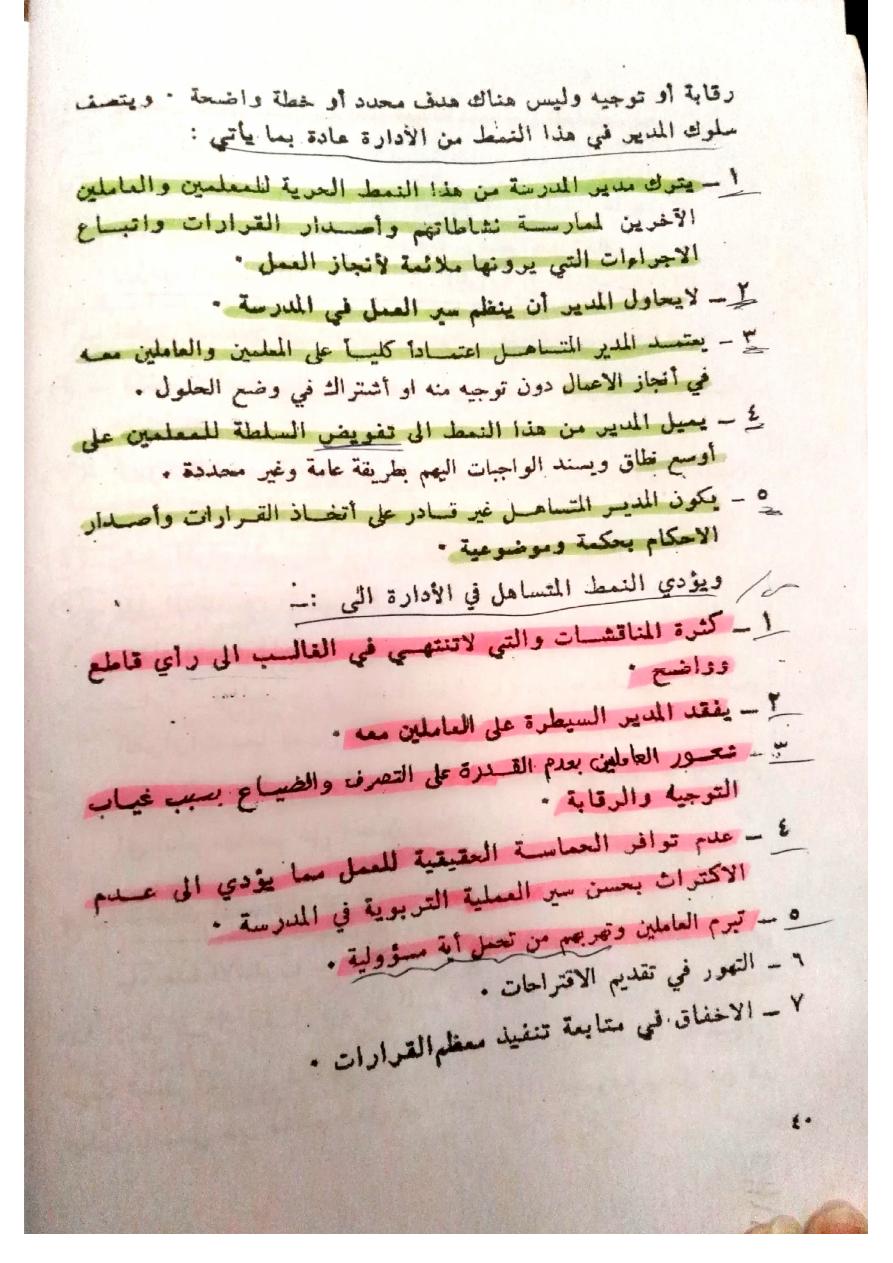 رقابة أو توجيه وليس هناك هدف محدد أو خطة واضحة . ويتصف
سلوك المدير في هذا النمط من الأدارة عادة بما يأتي :
١ – يترك مدير المدرسة من هذا النمط الحرية للمعلمين والعاملين
الآخرين لممارسة نشاطاتهم وأصدار القرارات واتباع
الاجراءات التي يرونها ملائمة لأنجاز العمل .
٢ – لايحاول المدير أن ينظم سير العمل في المدرسة .
٣ – يعتمد المدير المتساهل اعتماداً كلياً على المعلمين والعاملين معه
في أنجاز الاعمال دون توجيه منه او أشتراك في وضع الحلول .
٤ – يميل المدير من هذا النمط الى تفويض السلطة للمعلمين على
أوسع نطاق ويسند الواجبات اليهم بطريقة عامة وغير محددة .
٥ – يكون المدير المتساهل غير قادر على أتخاذ القرارات وأصدار
الاحكام بحكمة وموضوعية .
ويؤدي النمط المتساهل في الأدارة الى :–
١ – كثرة المناقشات والتي لاتنتهي في الغالب الى رأي قاطع
وواضح .
٢ – يفقد المدير السيطرة على العاملين معه .
٣ – شعور العاملين بعدم القدرة على التصرف والضياع بسبب غياب
التوجيه والرقابة .
٤ – عدم توافر الحماسة الحقيقية للعمل مما يؤدي الى عدم
الاكتراث بحسن سير العملية التربوية في المدرسة .
٥ – تبرم العاملين وتهربهم من تحمل أية مسؤولية .
٦ – التهور في تقديم الاقتراحات .
٧ – الاخفاق في متابعة تنفيذ معظم القرارات .
٤٠